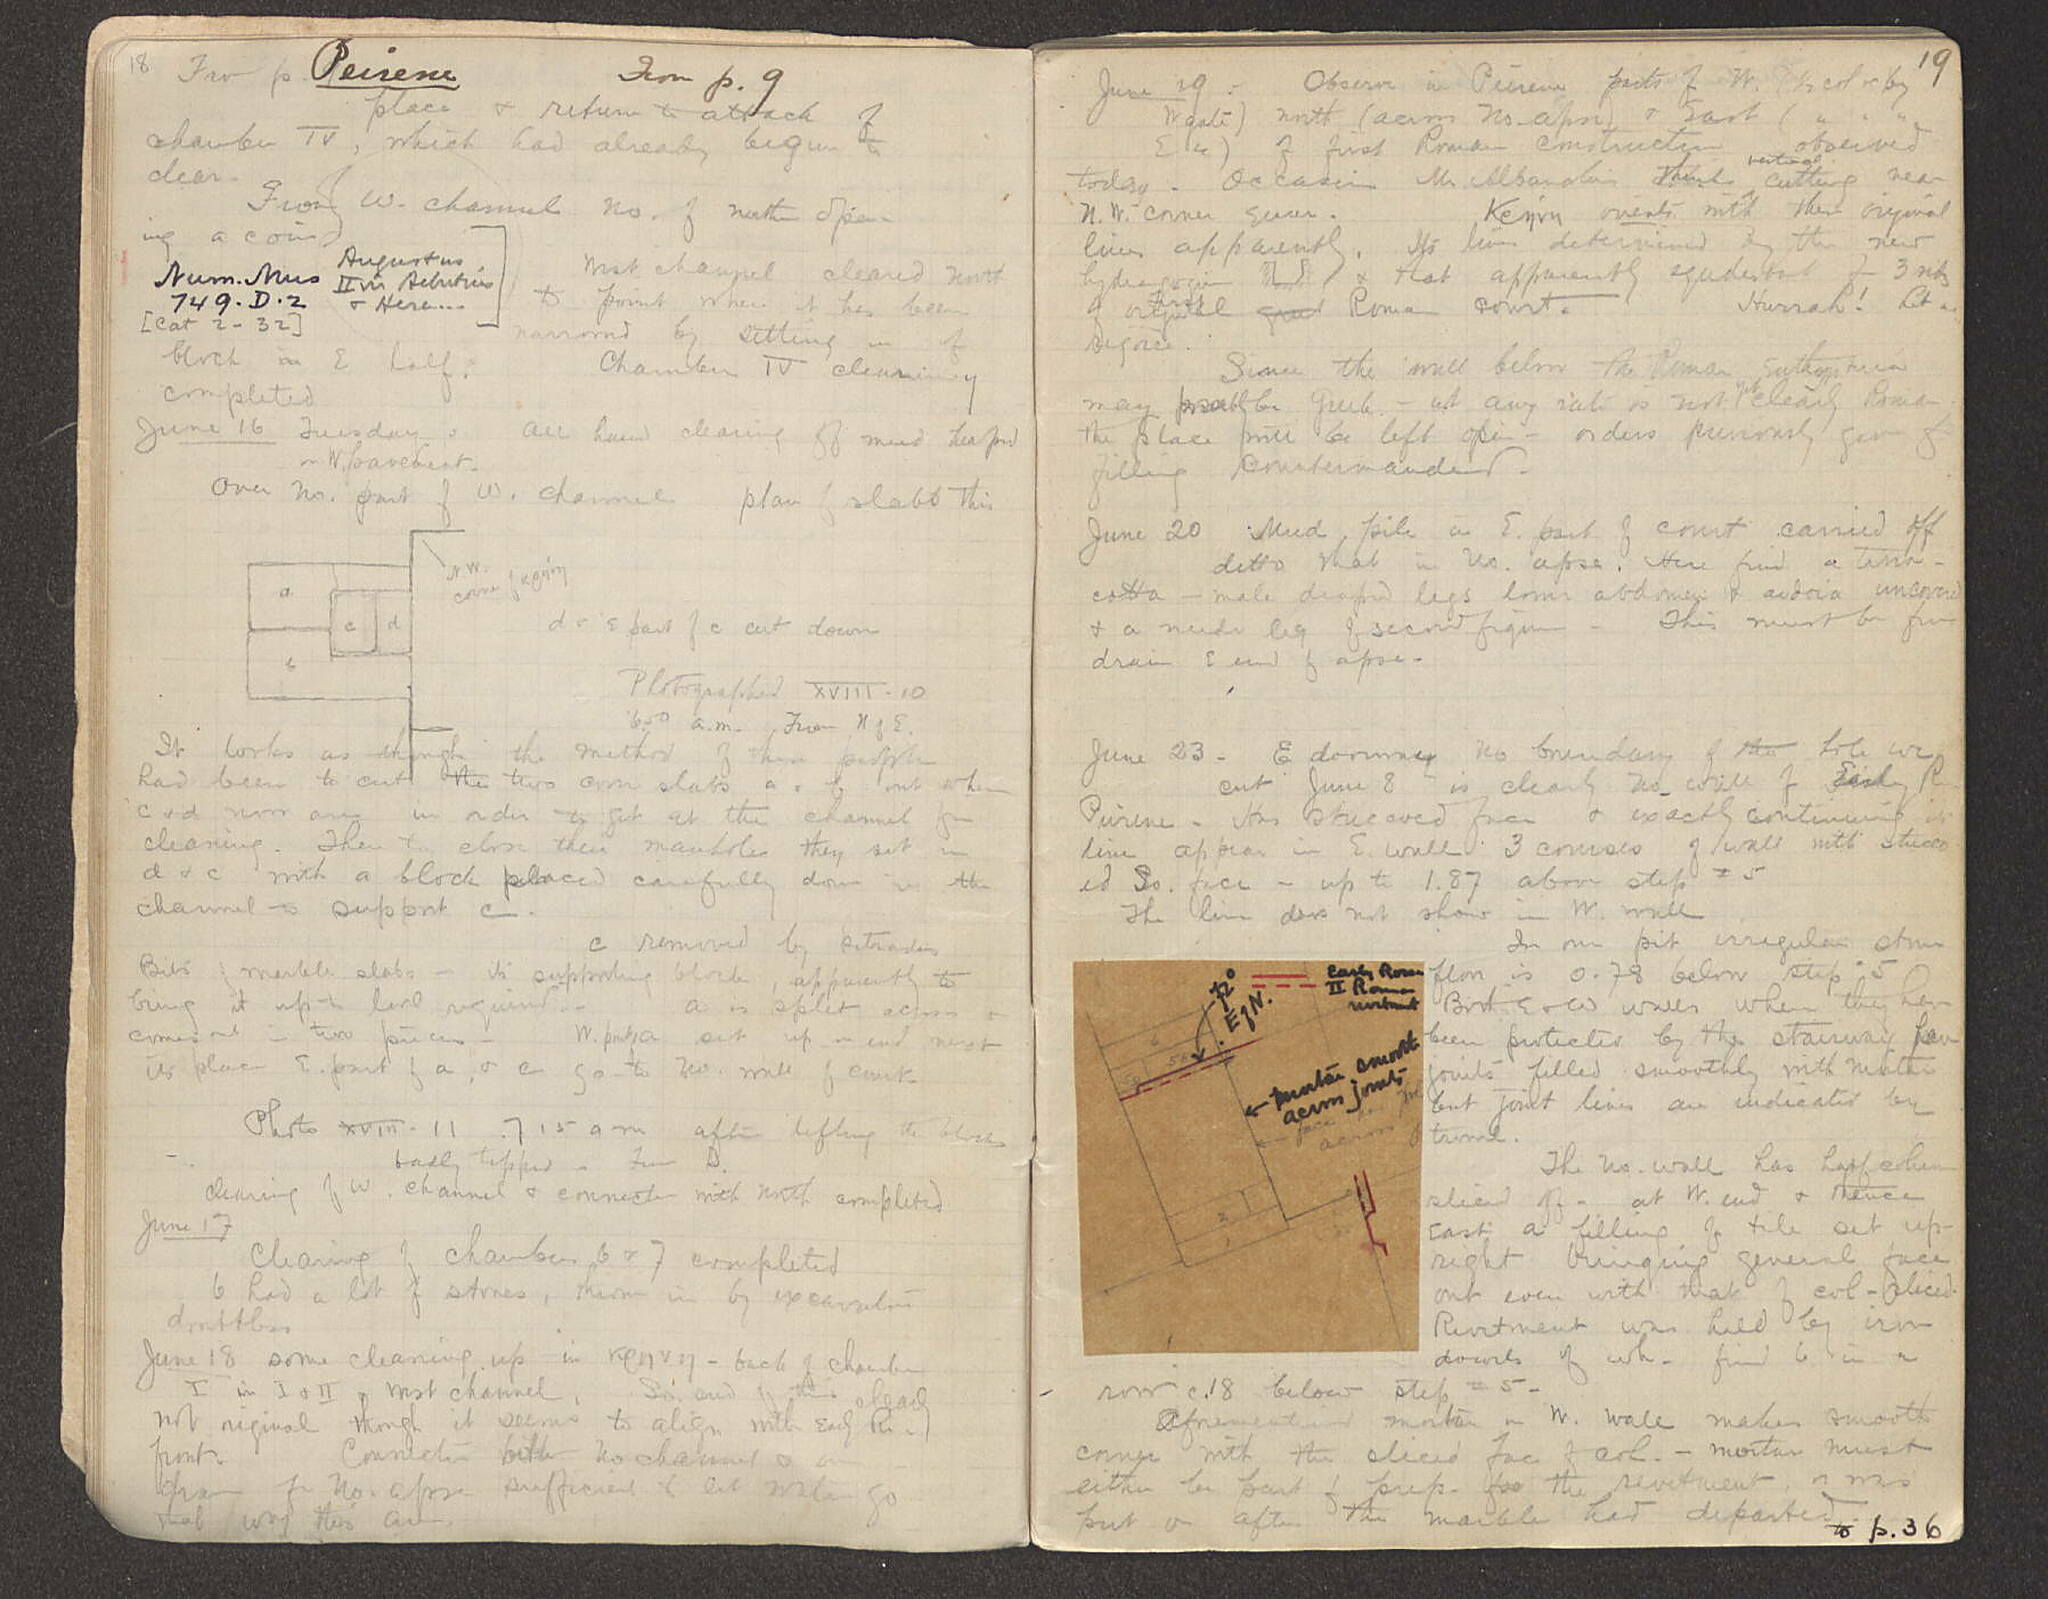 18 Fro p. Peirene From p. 9
place & return to attack of
chamber IV, which had already begun to
clear.
From W. channel no. of north open-
ing a coin
Num. Mus Augustus
749.D.2 II vir Aebutius
[Cat 2-32] & Hera...
West channel cleared north
to point where it has been
narrowed by setting in of
block in E half. Chamber IV cleaning
completed
June 16 Tuesday. All hand clearing off mud heaped
on W. pavement.
Over no. part of W. channel plan of slabs this
N.W.
corner of κρήνη
a
b
c
d
d & E part of c cut down
Photographed XVIII-10
6.50 a.m. From N of E.
It looks as though the method of these people
had been to cut the two cover slabs a & b out where
c & d now are in order to get at the channel for
cleaning. Then to close their manholes they set in
d & c with a block placed carefully down in the
channel to support c.
c removed by
Bits of marble slabs — its supporting block, apparently to
bring it up to level required. a is split across &
comes out in two pieces — W. part a set up on end next
its place E. part of a, & c go to No. wall of court
Photo XVIII-11 7 15 am after lifting the blocks
badly tipped - From D.
clearing of W. channel & connection with north completed
June 17
Clearing of chambers 6 & 7 completed
6 had a lot of stones, thrown in by excavators
doubtless
June 18 some cleaning up in κρήνη - back of chamber
I in I & II & West channel. So. end of this clearly
not original though it seems to align with Early Ro
front. Connection with No channel &
drain for No. apse sufficient to let water go
way this
19
June 19 - Observe in Peirene parts of W. (½ col by
W gate) north (across No. apse) & East ( " " "
E ") of first Roman construction observed
today. Occasion Mr. vertical cutting near
N.W. corner sewer. Κρήνη orients with these original
lines apparently. Its lines determined by the new
& that apparently equidistant from 3 sides
of original first Roman court. Hurrah! Let us
rejoice.
Since the wall below the Roman
may possibly be Greek — at any rate is not yet clearly Roman
the place will be left open — orders previously given for
filling countermanded.
June 20 Mud pile in E. part of court carried off
ditto that in No. apse. Here find a terra-
cotta — male draped legs lower abdomen & aidoia uncovered
& a nude leg of second figure — This must be from
drain E end of apse.
June 23 - E doorway No boundary of the hole we
cut June 8 is clearly No. wall of Early R
Peirene. Has stuccoed face & exactly continuing its
line appear in E. wall 3 courses of wall with stucco
ed So. face — up to 1.87 above step #5
The line does not show in W. wall
In our pit irregular stone
floor is 0.78 below step #5
Both E & W walls where they have
been protected by the stairway have
joints filled smoothly with mortar
but joint lines are indicated by
trowel.
The No. wall has half column
sliced off - at W. end & thence
East a filling of tile set up-
right bringing general face
out even with that of col - sliced.
Revetment was held by iron
dowels of wh. find 6 in a
row c.18 below step #5 -
Aforementioned mortar on W. wall makes smooth
corner with the sliced face of col. — mortar must
either be part of prep. for the revetment, or was
put on after the marble had departed.
to p. 36
Early Roman
II Roman
revetment
E of N.
6
5
2
1
← mortar smooth
across joints